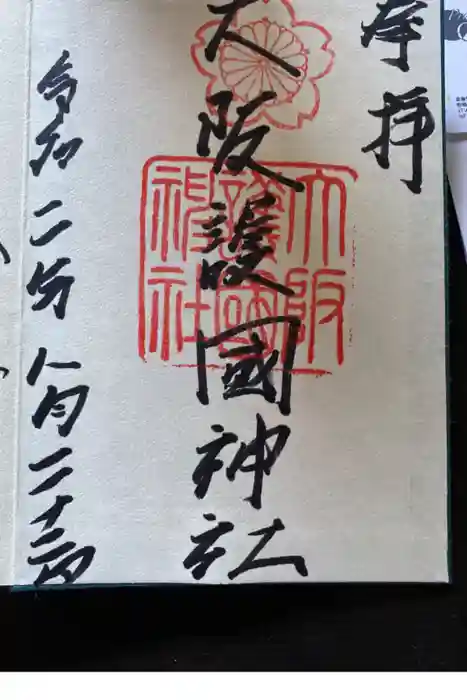 奉拝
大阪護國神社
大阪
護國
神社
令和二年八月二十二日